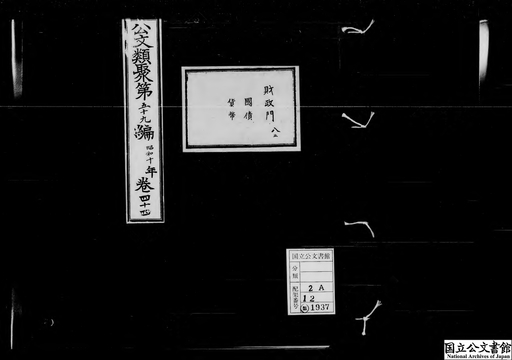 公文類聚第五十九編 昭和十年 巻四十四
財政門 八
國債
貨幣
国立公文書館
分類
配架番号
2A
12
1937
国立公文書館
National Archives of Japan